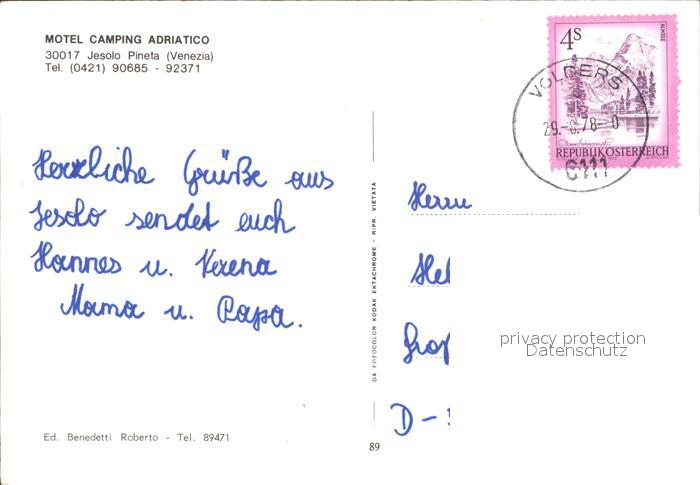 MOTEL CAMPING ADRIATICO
30017 Jesolo Pineta (Venezia)
Tel. (0421) 90685 - 92371
Herzliche Grüße aus
Jesolo sendet euch
Hannes u. Verena
Mama u. Papa.
Ed. Benedetti Roberto - Tel. 89471
DA FOTOCOLOR KODAK EKTACHROME - RIPR. VIETATA
89
4S
ALMSEE
REPUBLIK ÖSTERREICH
VOLDERS
6111
Herrn
D-
privacy protection
Datenschutz